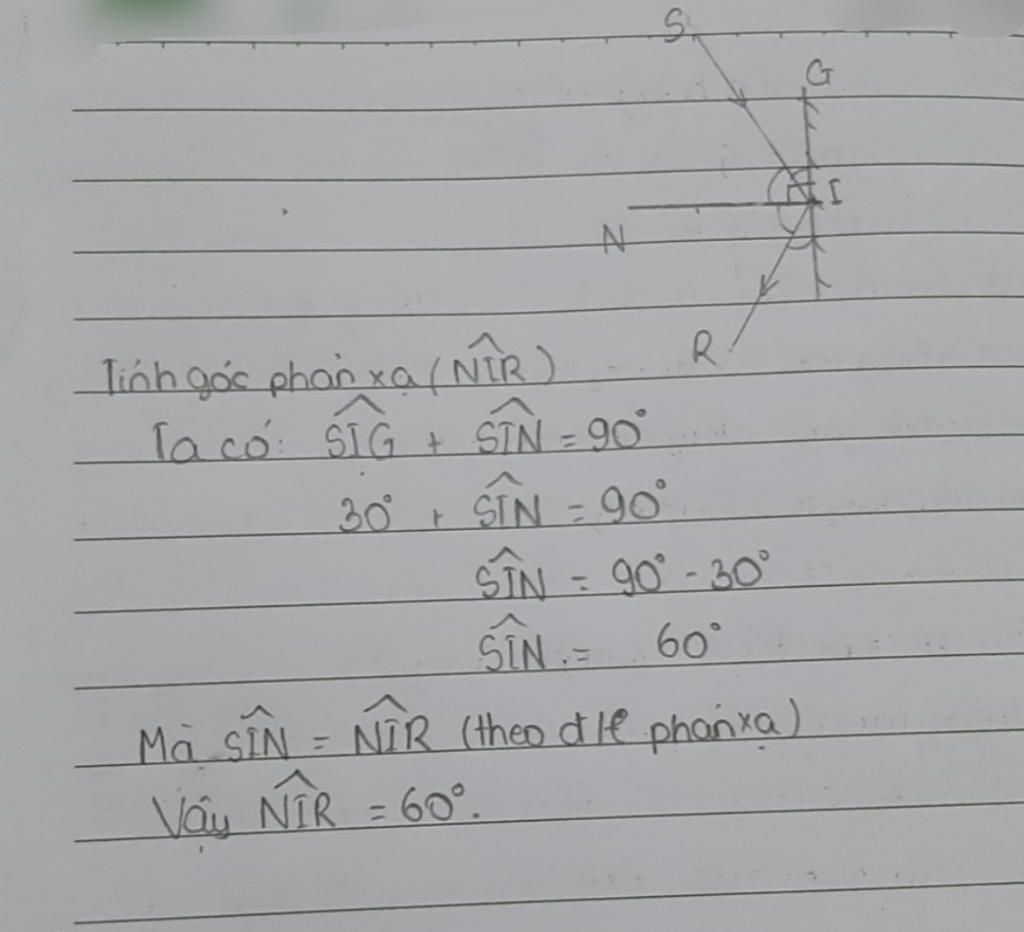 S
G
I
N
R
Tính góc phản xạ (NÎR)
Ta có: SÎG + SÎN = 90°
30° + SÎN = 90°
SÎN = 90° - 30°
SÎN = 60°
Mà SÎN = NÎR (theo đ/l phản xạ)
Vậy NÎR = 60°.